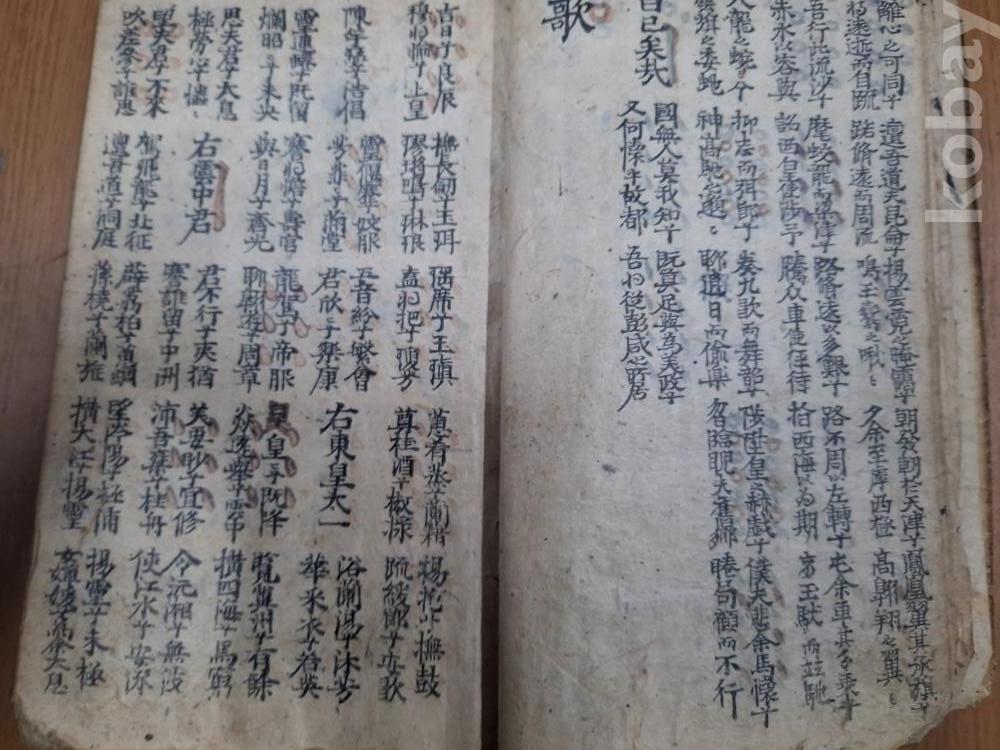 離心之可同兮
将遠逝而自疏
邅吾道夫昆侖兮
路脩遠而周流
揚雲霓之晻靄兮
鳴玉鸞之啾々
朝發軔於天津兮
夕余至庠西極
鳳凰翼其承旗兮
高翱翔之翼々
吾行此流沙兮
赤水以容與
麾蛟龍而梁津兮
詔西皇使涉予
路脩遠以多艱兮
騰众車使徑待
路不周以左轉兮
指西海以為期
屯余車其千乘兮
齊玉軑而並馳
八龍之蜿々兮
雲旗之委蛇
抑志而弭節兮
神高馳之邈々
奏九歌而舞韶兮
聊遐日而偷樂
陟陞皇之赫戲兮
忽臨睨夫舊鄉
僕夫悲余馬懷兮
蜷局顧而不行
曰已矣哉
國無人莫我知兮
又何懷乎故都
既莫足與為美政兮
吾将從彭咸之所居
歌
吉日兮良辰
穆将愉兮上皇
撫長劍兮玉珥
璆鏘鳴兮琳琅
瑤席兮玉瑱
盍将把兮瓊芳
蕙肴蒸兮蘭藉
尊桂酒兮椒漿
揚枹兮撫鼓
疏緩節兮安歌
陳竽瑟兮浩倡
靈偃蹇兮姣服
芳菲々兮滿堂
五音紛兮繁會
君欣々兮樂康
右東皇太一
浴蘭湯兮沐芳
華采衣兮若英
靈連蜷兮既留
爛昭々兮未央
蹇将憺兮壽宮
與日月兮齊光
龍駕兮帝服
聊翱遊兮周章
皇皇兮既降
猋遠舉兮雲中
覽冀州兮有餘
橫四海兮焉窮
思夫君兮太息
極勞心兮忡
右雲中君
君不行兮夷猶
蹇誰留兮中洲
美要眇兮宜修
沛吾乘兮桂舟
令沅湘兮無波
使江水兮安流
望夫君兮不來
吹參差兮誰思
駕飛龍兮北征
邅吾道兮洞庭
薜荔柏兮蕙綢
蓀橈兮蘭旌
望涔陽兮極浦
橫大江兮揚靈
揚靈兮未極
女嬋媛為余太息
kobay